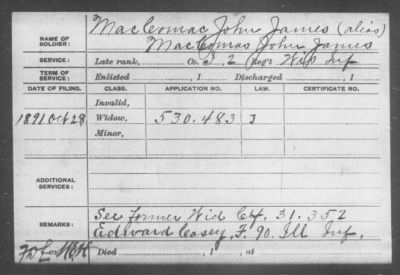 NAME OF SOLDIER: MacComac John James (alias)
MacComas John James
SERVICE: Late rank, Co. I, 2 Reg't Wis Inf
TERM OF SERVICE: Enlisted , 1 Discharged , 1
DATE OF FILING. CLASS. APPLICATION NO. LAW. CERTIFICATE NO.
Invalid,
1891 Oct 29 Widow, 530.483
Minor,
ADDITIONAL SERVICES:
See former Wid Ctf. 31.352
REMARKS: Edward Casey, F. 90. Ill Inf,
Died , 1 , at